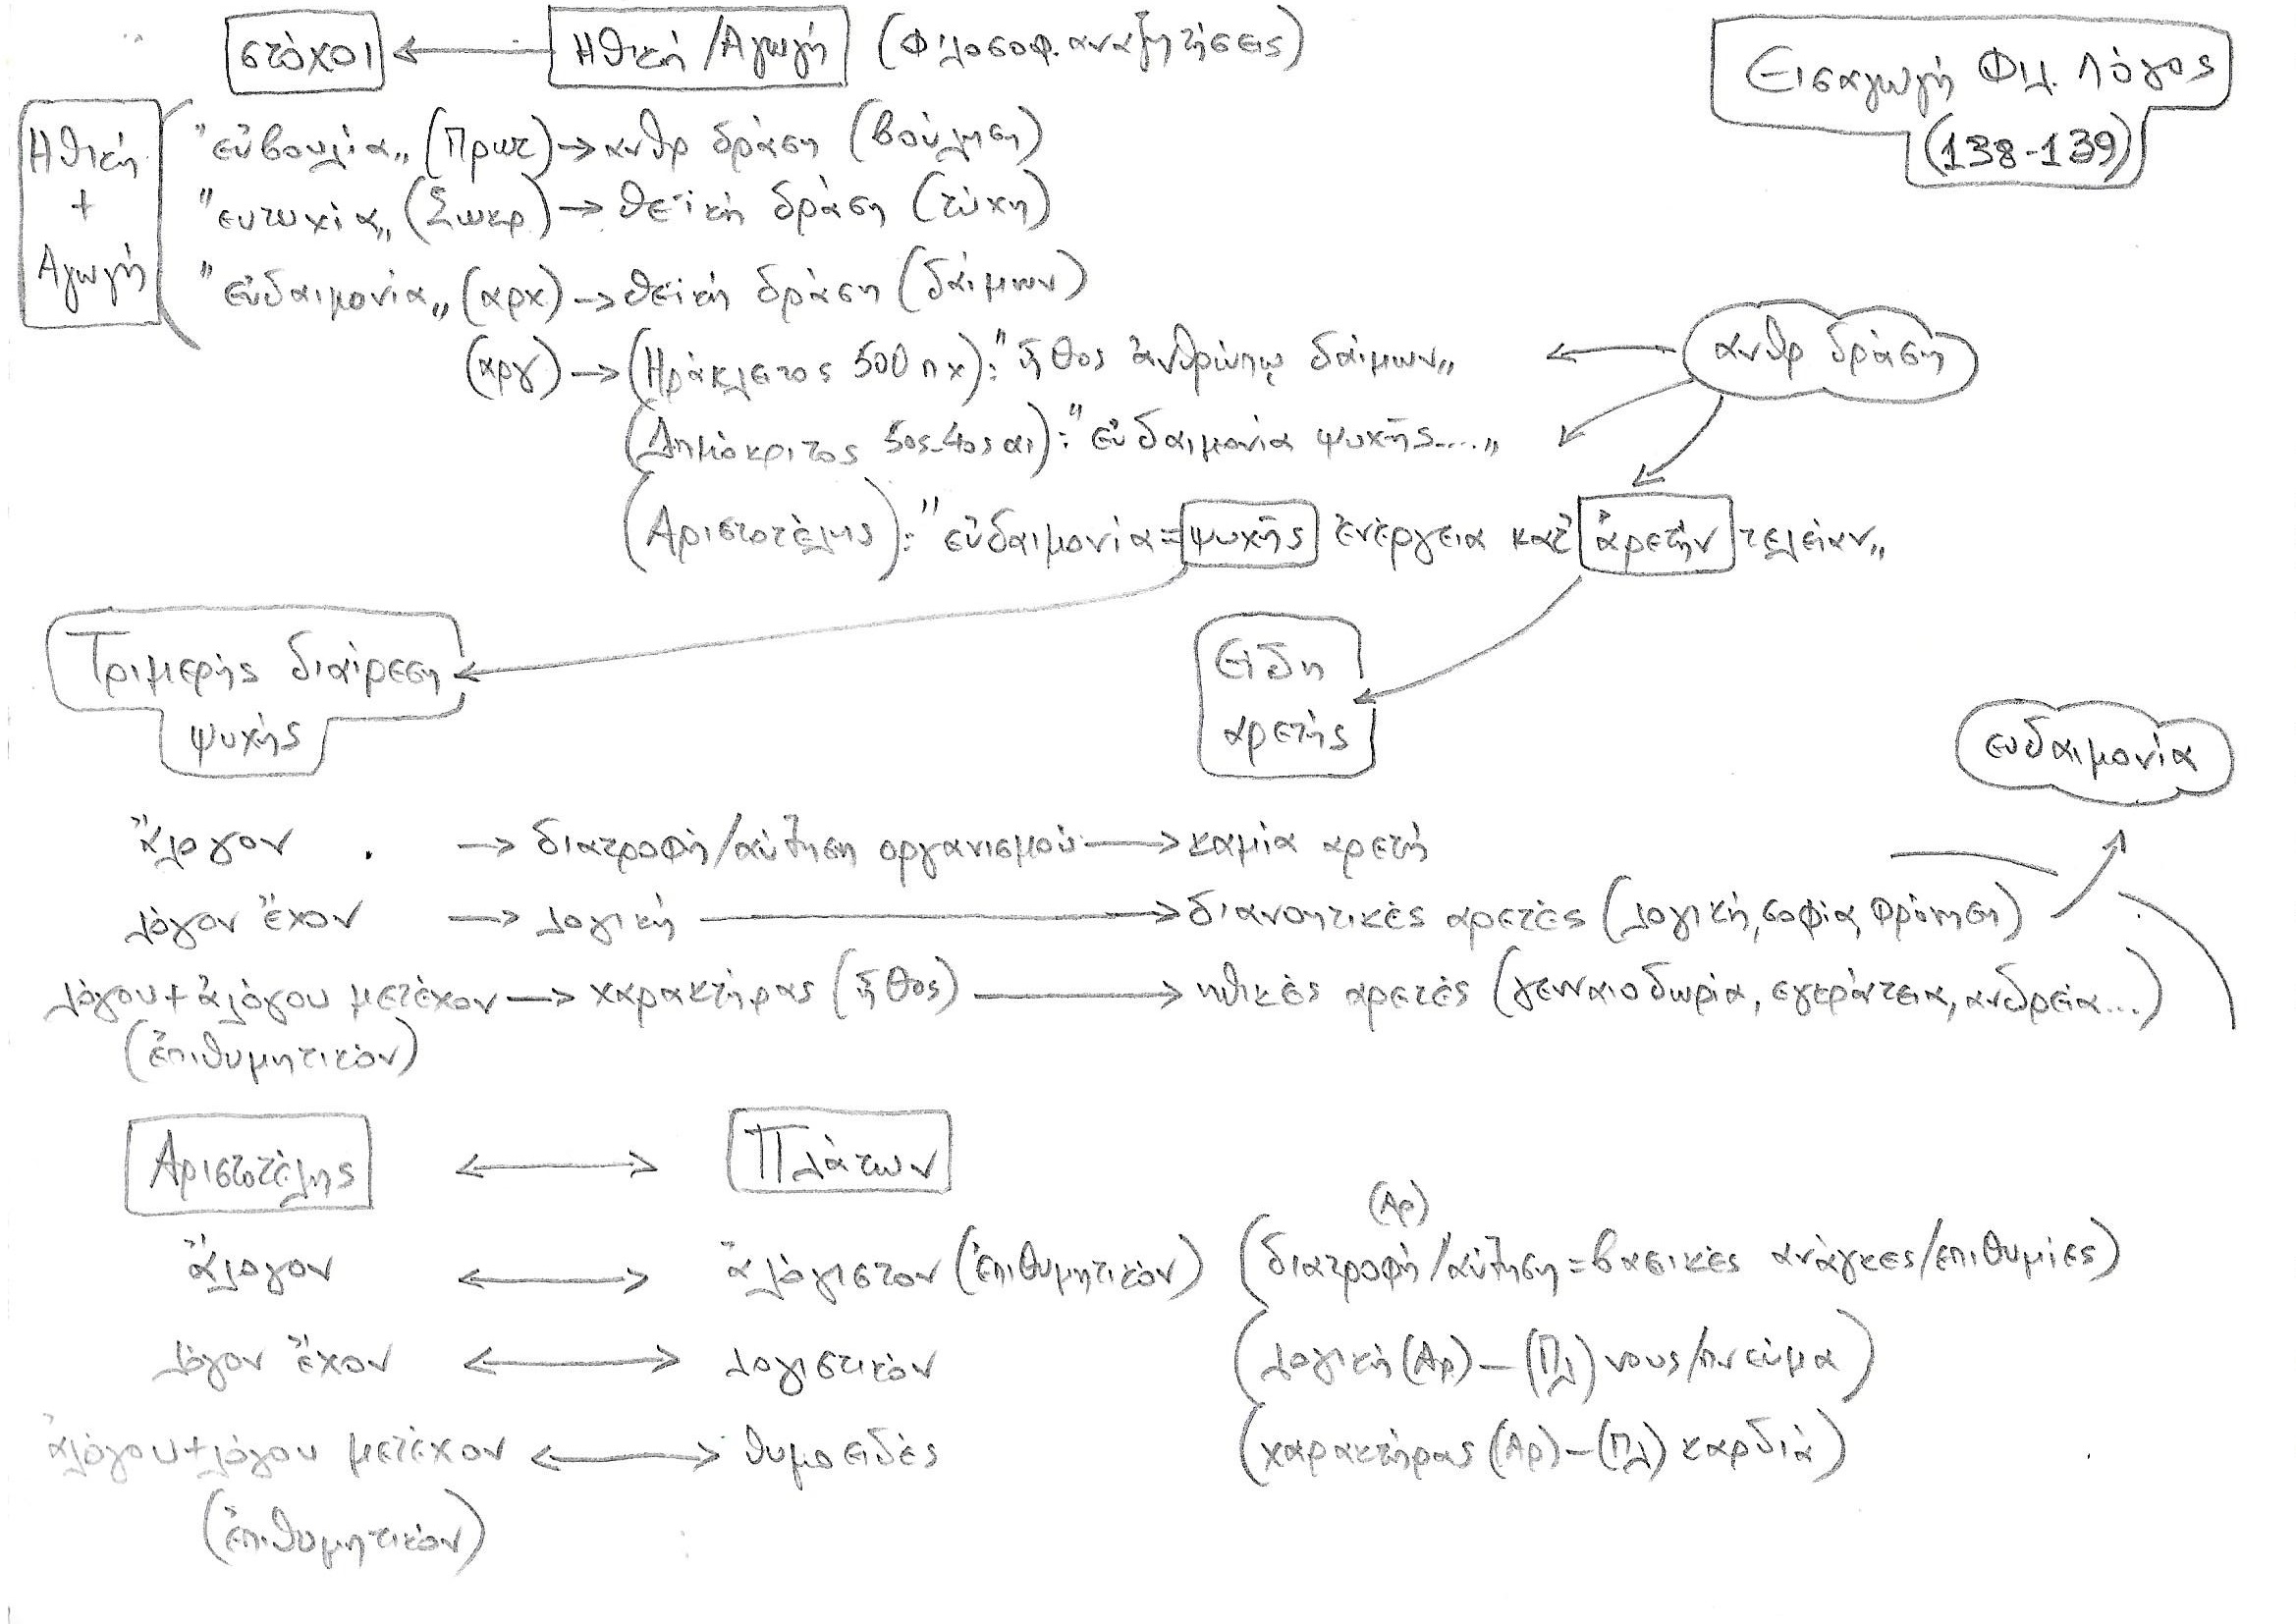 στόχοι ← Ηθική/Αγωγή (Φιλοσοφ. αναζητήσεις)
Εισαγωγή Φιλ. Λόγος
(138-139)
Ηθική
+
Αγωγή
"εὐβουλία„ (Πρωτ) → ανθρ δράση (βούληση)
"ευτυχία„ (Σωκρ.) → θεϊκή δράση (τύχη)
"εὐδαιμονία„ (αρχ) → θεϊκή δράση (δαίμων)
(αργ) → (Ηράκλειτος 500 πχ): "ἦθος ἀνθρώπῳ δαίμων„
ανθρ δράση
(Δημόκριτος 5ος-4ος αι): "εὐδαιμονία ψυχῆς....„
(Αριστοτέλης): "εὐδαιμονία = ψυχῆς ἐνέργεια κατ' ἀρετήν τελείαν„
Τριμερής διαίρεση
ψυχής
Είδη
αρετής
ευδαιμονία
ἄλογον → διατροφή/αύξηση οργανισμού → καμία αρετή
λόγον ἔχον → λογική → διανοητικές αρετές (λογική, σοφία, φρόνηση)
λόγου + ἀλόγου μετέχον → χαρακτήρας (ἦθος) → ηθικές αρετές (γενναιοδωρία, εγκράτεια, ανδρεία...)
(ἐπιθυμητικόν)
Αριστοτέλης ↔ Πλάτων
(Αρ)
ἄλογον ↔ ἀλόγιστον (ἐπιθυμητικόν) (διατροφή/αύξηση = βασικές ανάγκες/επιθυμίες)
λόγον ἔχον ↔ λογιστικόν (λογική (Αρ) – (Πλ) νους/πνεύμα)
ἀλόγου + λόγου μετέχον ↔ θυμοειδές (χαρακτήρας (Αρ) – (Πλ) καρδιά)
(ἐπιθυμητικόν)